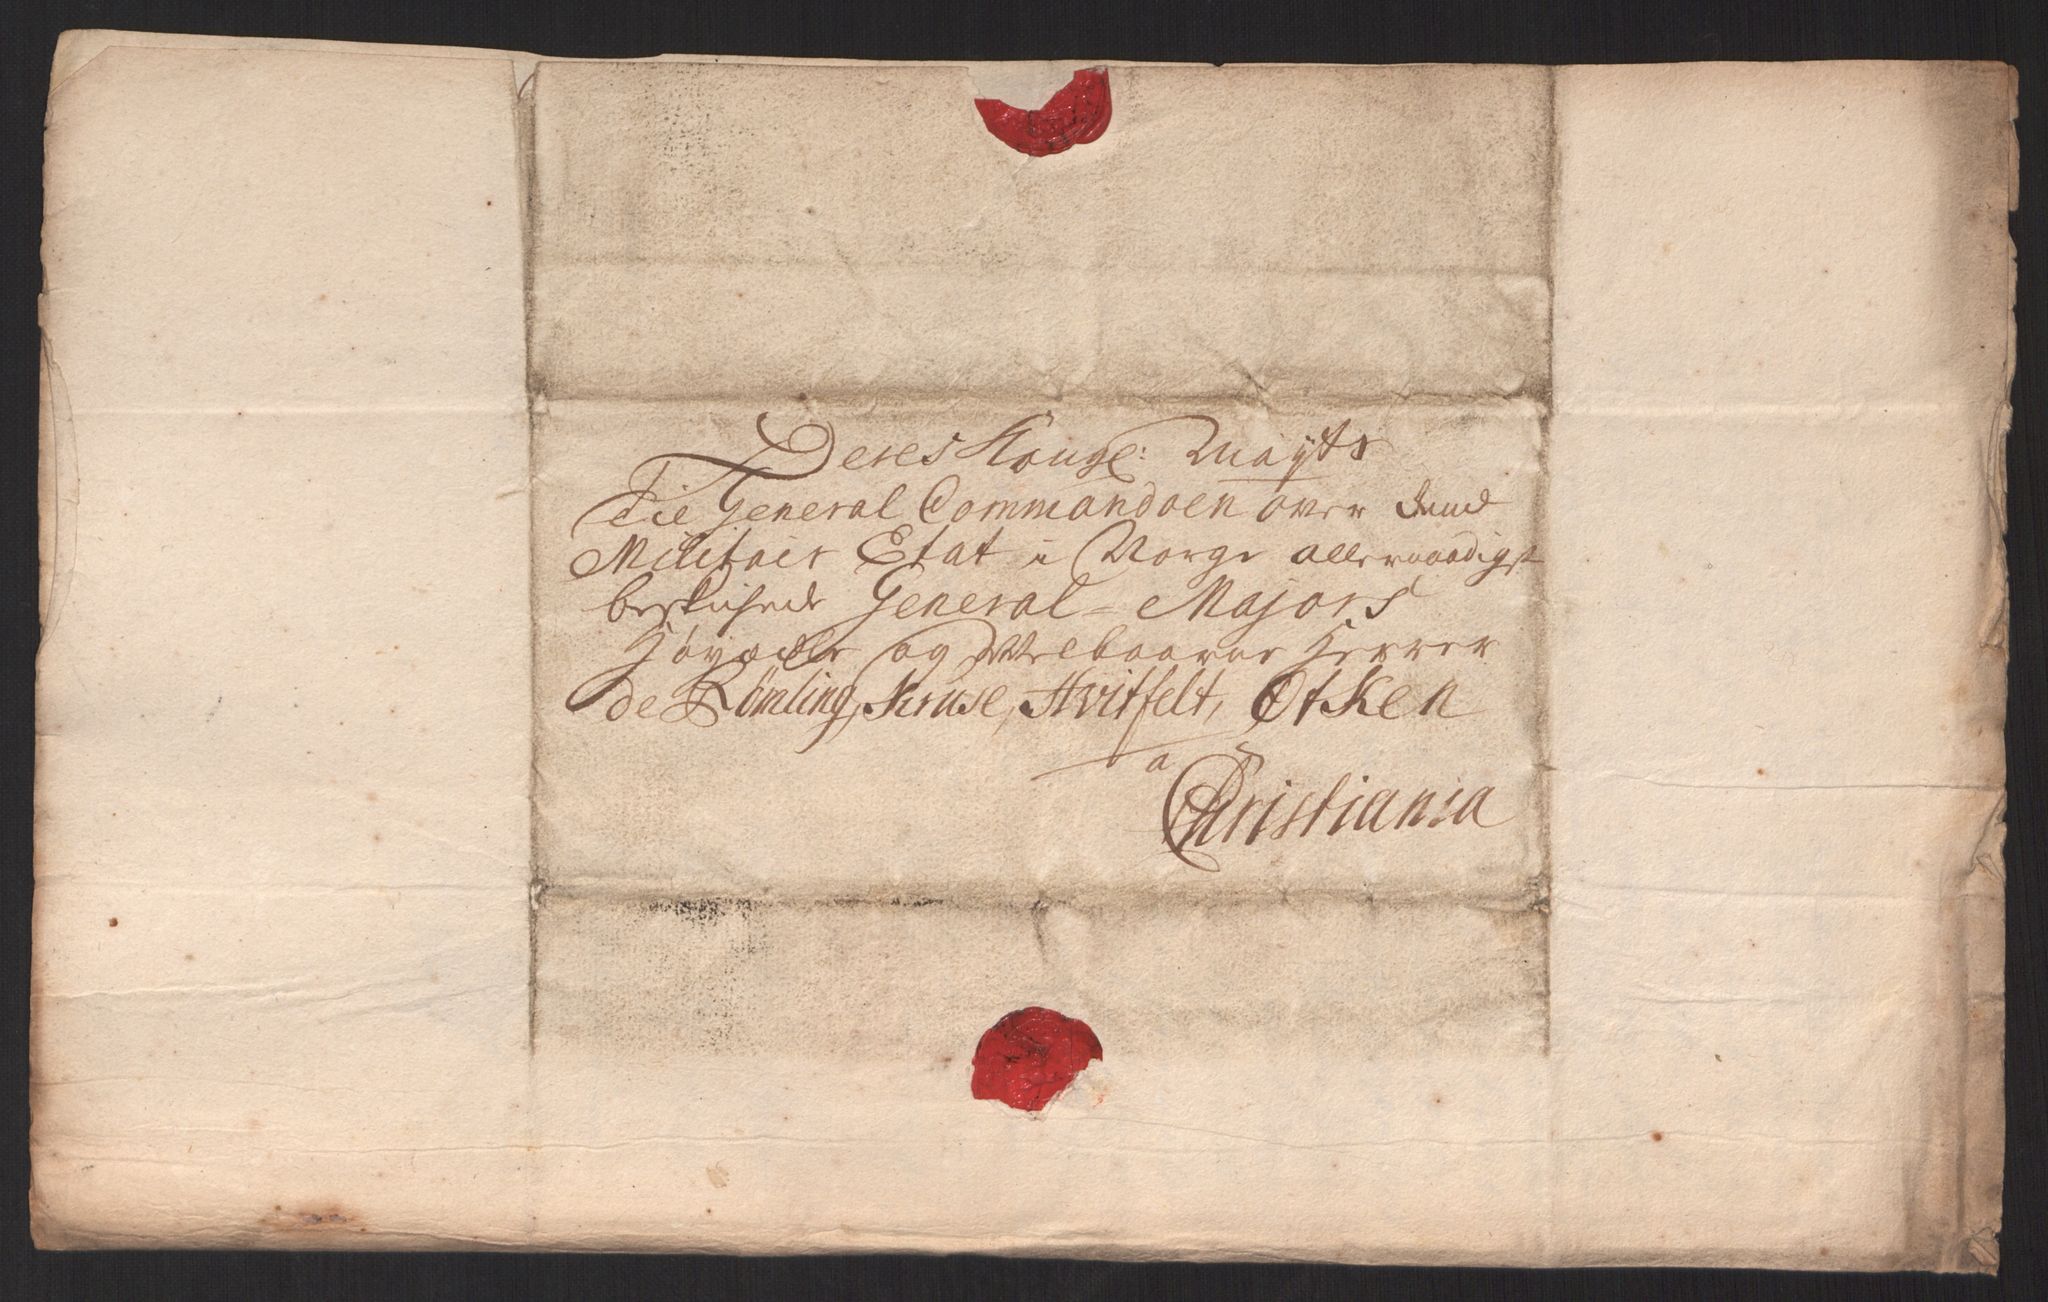 Deres Kongl: Mayts
Til General Commandoen over dend
Militair Etat i Norge allernaadigst
beskichede General-Majors
Høyædle og Velbaarne Herrer
de Römling, Kruse, Hvitfelt, Øtken
a
Christiania